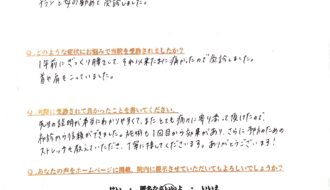 チラシを の勧めで 受診しました。
Q. どのような症状にお悩みで当院を受診されましたか？
1年前にぎっくり腰をして、それ以来たまに痛かったので受診しました。
首や肩もこっていました。
Q. 実際に受診されて良かったことを書いてください。
先生の説明が本当にわかりやすくて、またとても病に寄り添って頂けたので、
初診から信頼ができました。施術も1回目から効果があり、さらに予防のための
ストレッチも教えていただき、丁寧に接してくださいます。ありがとうございます！
Q. あなたの声をホームページに掲載、院内に展示させていただいてもよろしいでしょうか？
はい ・ 匿名ならいいよ ・ いいえ